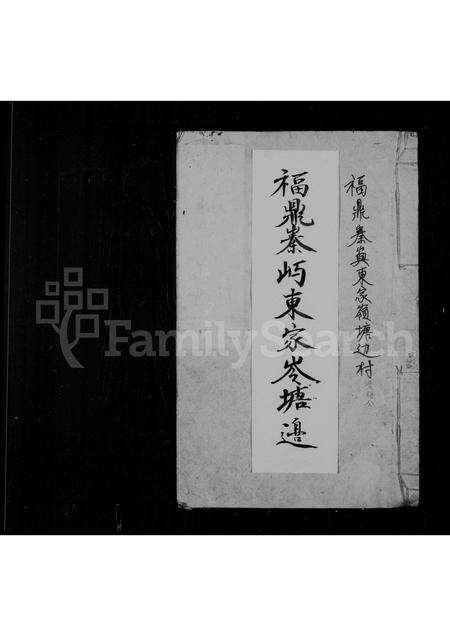 福鼎秦嶼東家嶺塘边村
福鼎秦屿東家岺塘邊
FamilySearch